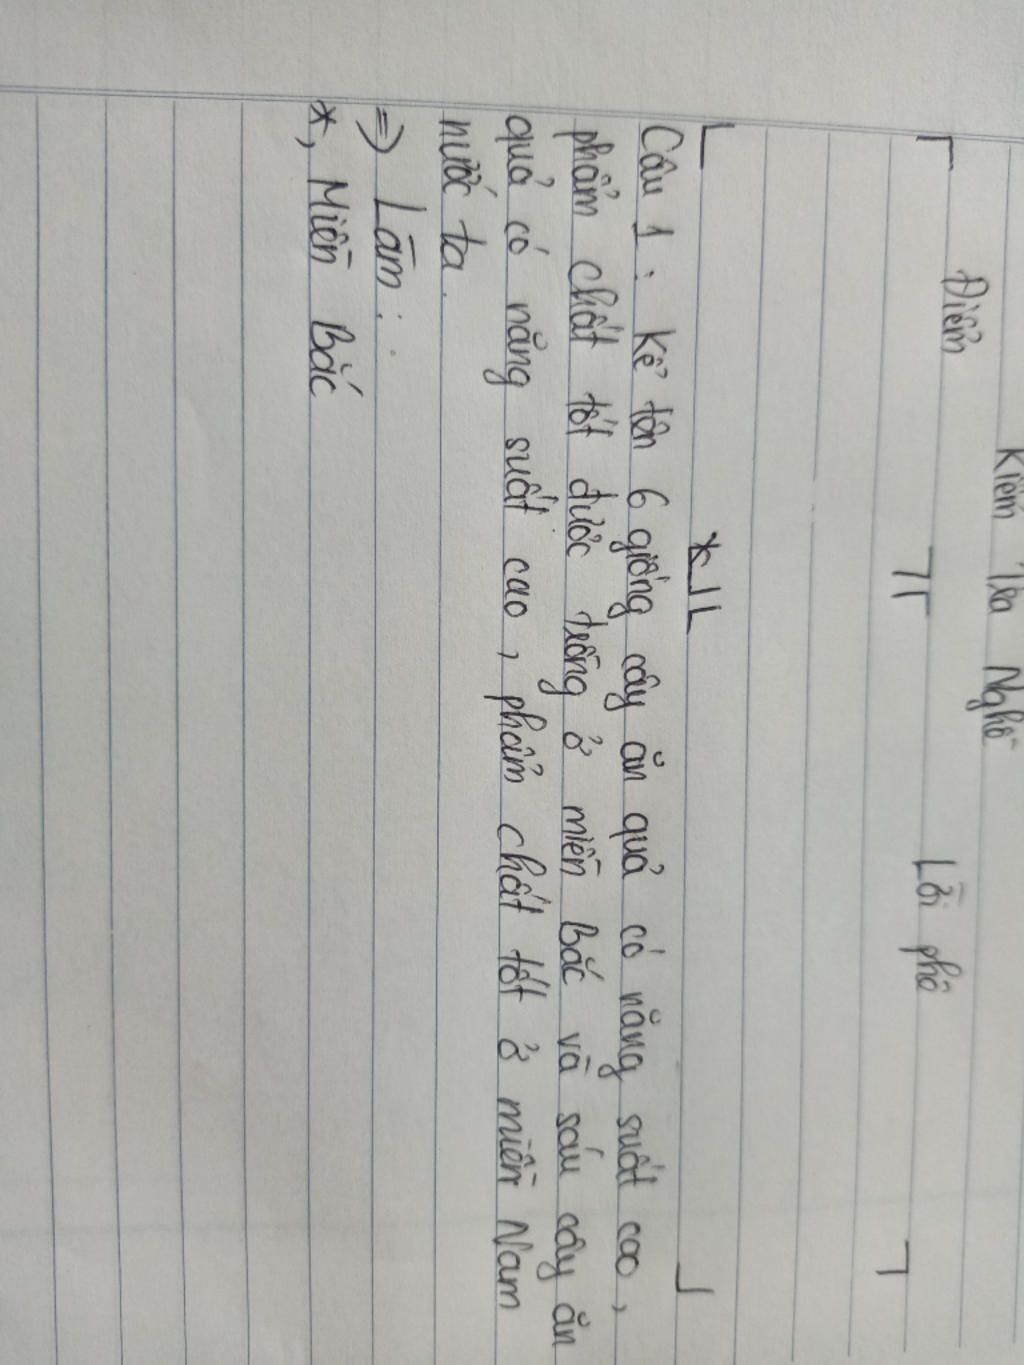 Kiểm Tra Nghề
Điểm Lời phê
*
Câu 1 : Kể tên 6 giống cây ăn quả có năng suất cao,
phẩm chất tốt được trồng ở miền Bắc và sáu cây ăn
quả có năng suất cao, phẩm chất tốt ở miền Nam
nước ta.
=> Làm :
*, Miền Bắc